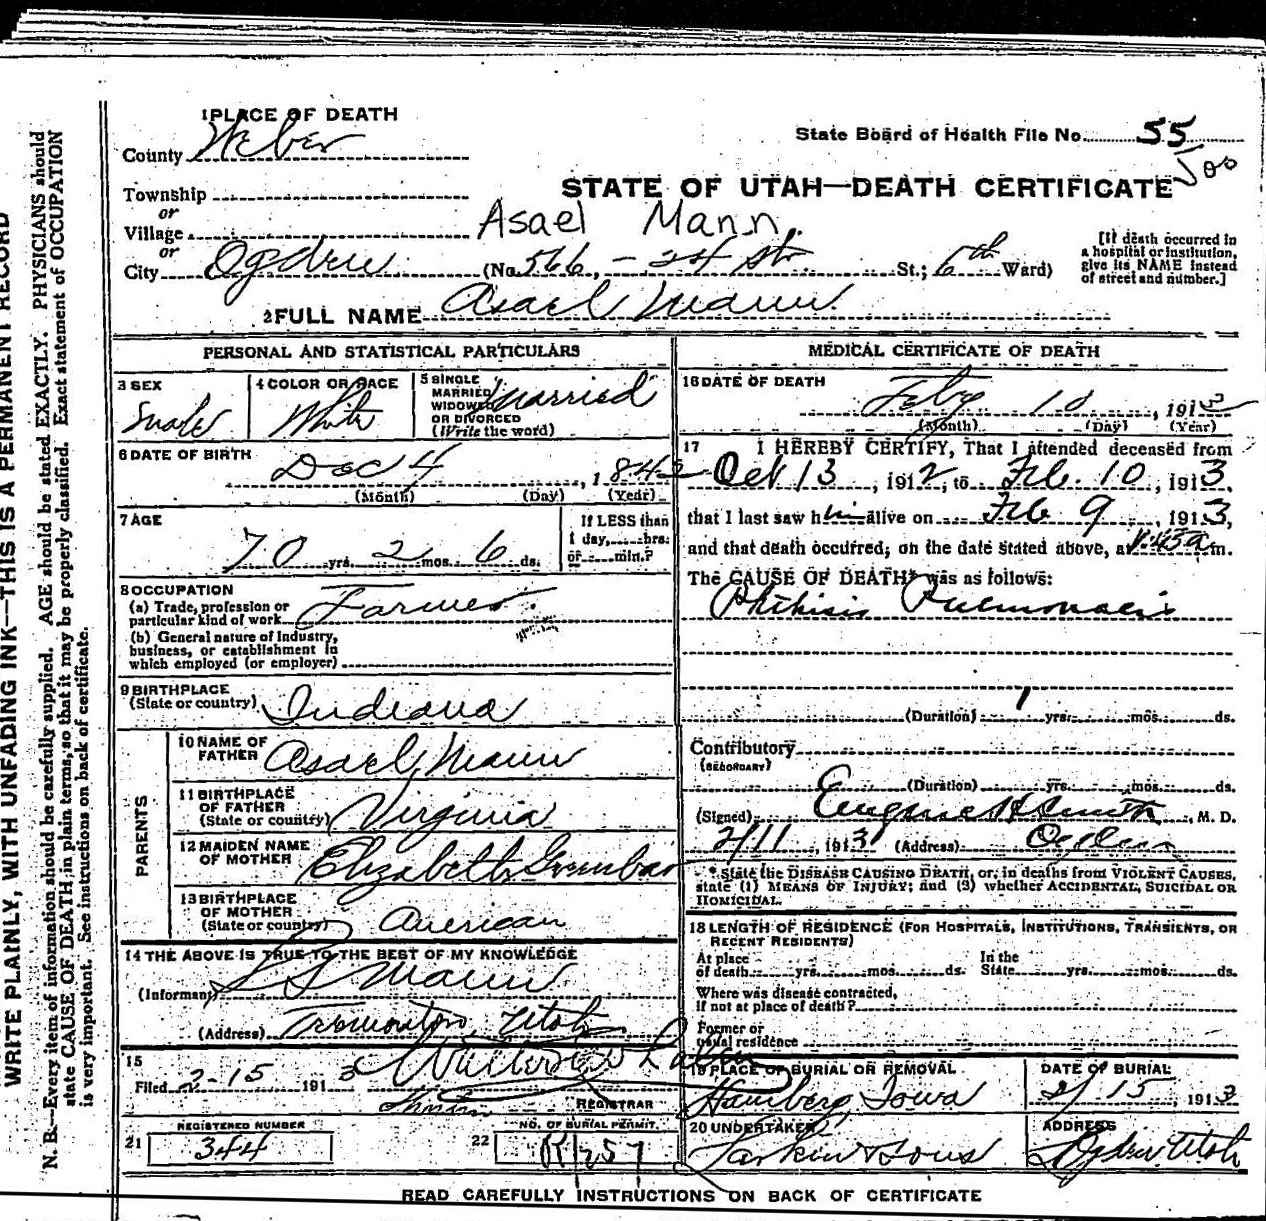 1 PLACE OF DEATH
County Weber
State Board of Health File No. 55
Township
or
Village
or
City Ogden
STATE OF UTAH—DEATH CERTIFICATE
Asael Mann
(No. 566, - 24 St. St.; 6th Ward)
[If death occurred in
a hospital or institution,
give its NAME instead
of street and number.]
2 FULL NAME Asael Mann
PERSONAL AND STATISTICAL PARTICULARS
3 SEX
male
4 COLOR OR RACE
White
5 SINGLE
MARRIED
WIDOWED
OR DIVORCED
(Write the word)
Married
6 DATE OF BIRTH
Dec 4, 1842
(Month) (Day) (Year)
7 AGE
70 yrs. 2 mos. 6 ds.
If LESS than
1 day, hrs.
or min.?
8 OCCUPATION
(a) Trade, profession or
particular kind of work Farmer
(b) General nature of Industry,
business, or establishment in
which employed (or employer)
9 BIRTHPLACE
(State or country) Indiana
PARENTS
10 NAME OF
FATHER Asael Mann
11 BIRTHPLACE
OF FATHER
(State or country) Virginia
12 MAIDEN NAME
OF MOTHER Elizabeth
13 BIRTHPLACE
OF MOTHER
(State or country) American
14 THE ABOVE IS TRUE TO THE BEST OF MY KNOWLEDGE
(Informant) Mann
(Address) Tremonton, Utah
15
Filed 2-15 1913
REGISTRAR
21 REGISTERED NUMBER
344
22 NO. OF BURIAL PERMIT
R 1257
MEDICAL CERTIFICATE OF DEATH
16 DATE OF DEATH
Feby 10, 1913
(Month) (Day) (Year)
17 I HEREBY CERTIFY, That I attended deceased from
Oct 13, 1912, to Feb. 10, 1913,
that I last saw him alive on Feb 9, 1913,
and that death occurred, on the date stated above, at m.
The CAUSE OF DEATH* was as follows:
Phthisis Pulmonalis
(Duration) 1 yrs. mos. ds.
Contributory
(SECONDARY)
(Duration) yrs. mos. ds.
(Signed) Eugene H Smith, M. D.
2/11, 1913 (Address) Ogden
* State the DISEASE CAUSING DEATH, or, in deaths from VIOLENT CAUSES,
state (1) MEANS OF INJURY; and (2) whether ACCIDENTAL, SUICIDAL OR
HOMICIDAL.
18 LENGTH OF RESIDENCE (FOR HOSPITALS, INSTITUTIONS, TRANSIENTS, OR
RECENT RESIDENTS)
At place
of death yrs. mos. ds.
In the
State yrs. mos. ds.
Where was disease contracted,
if not at place of death?
Former or
usual residence
19 PLACE OF BURIAL OR REMOVAL
Hamberg, Iowa
DATE OF BURIAL
2/15, 1913
20 UNDERTAKER
Larkin & Sons
ADDRESS
Ogden Utah
READ CAREFULLY INSTRUCTIONS ON BACK OF CERTIFICATE
WRITE PLAINLY, WITH UNFADING INK—THIS IS A PERMANENT RECORD
N. B.—Every item of information should be carefully supplied. AGE should be stated EXACTLY. PHYSICIANS should
state CAUSE OF DEATH in plain terms, so that it may be properly classified. Exact statement of OCCUPATION
is very important. See instructions on back of certificate.